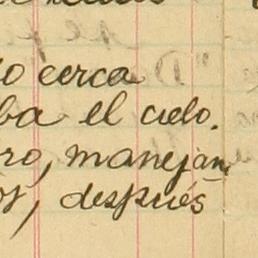 o cerca
ba el cielo.
ro, manejan
os, después